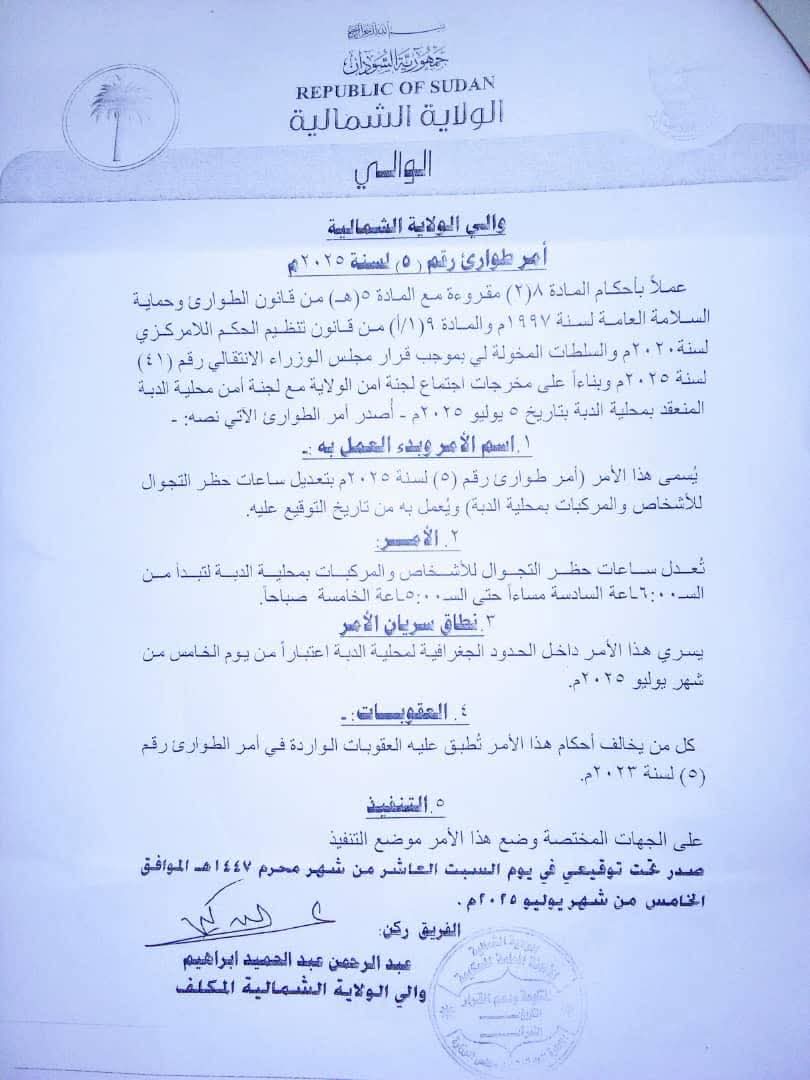 بسم الله الرحمن الرحيم
جمهورية السودان
REPUBLIC OF SUDAN
الولاية الشمالية
الوالي
والي الولاية الشمالية
أمر طوارئ رقم (٥) لسنة ٢٠٢٥م
عملاً بأحكام المادة ٨(٢) مقروءة مع المادة ٥(هـ) من قانون الطوارئ وحماية
السلامة العامة لسنة ١٩٩٧م والمادة ٩(١/أ) من قانون تنظيم الحكم اللامركزي
لسنة ٢٠٢٠م والسلطات المخولة لي بموجب قرار مجلس الوزراء الانتقالي رقم (٤١)
لسنة ٢٠٢٥م وبناءاً على مخرجات اجتماع لجنة امن الولاية مع لجنة أمن محلية الدبة
المنعقد بمحلية الدبة بتاريخ ٥ يوليو ٢٠٢٥م - أصدر أمر الطوارئ الآتي نصه: -
١. اسم الأمر وبدء العمل به :-
يُسمى هذا الأمر (أمر طوارئ رقم (٥) لسنة ٢٠٢٥م بتعديل ساعات حظر التجوال
للأشخاص والمركبات بمحلية الدبة) ويُعمل به من تاريخ التوقيع عليه.
٢. الأمــر:
تُعدل ساعات حظر التجوال للأشخاص والمركبات بمحلية الدبة لتبدأ من
الســ٦:٠٠ـاعة السادسة مساءاً حتى الســ٥:٠٠ـاعة الخامسة صباحاً.
٣. نطاق سريان الأمر
يسري هذا الأمر داخل الحدود الجغرافية لمحلية الدبة اعتباراً من يوم الخامس من
شهر يوليو ٢٠٢٥م.
٤. العقوبــات: -
كل من يخالف أحكام هذا الأمر تُطبق عليه العقوبات الواردة في أمر الطوارئ رقم
(٥) لسنة ٢٠٢٣م.
٥. التنفيذ
على الجهات المختصة وضع هذا الأمر موضع التنفيذ
صدر تحت توقيعي في يوم السبت العاشر من شهر محرم ١٤٤٧هـ الموافق
الخامس من شهر يوليو ٢٠٢٥م .
الفريق ركن:
عبد الرحمن عبد الحميد ابراهيم
والي الولاية الشمالية المكلف
الولاية الشمالية